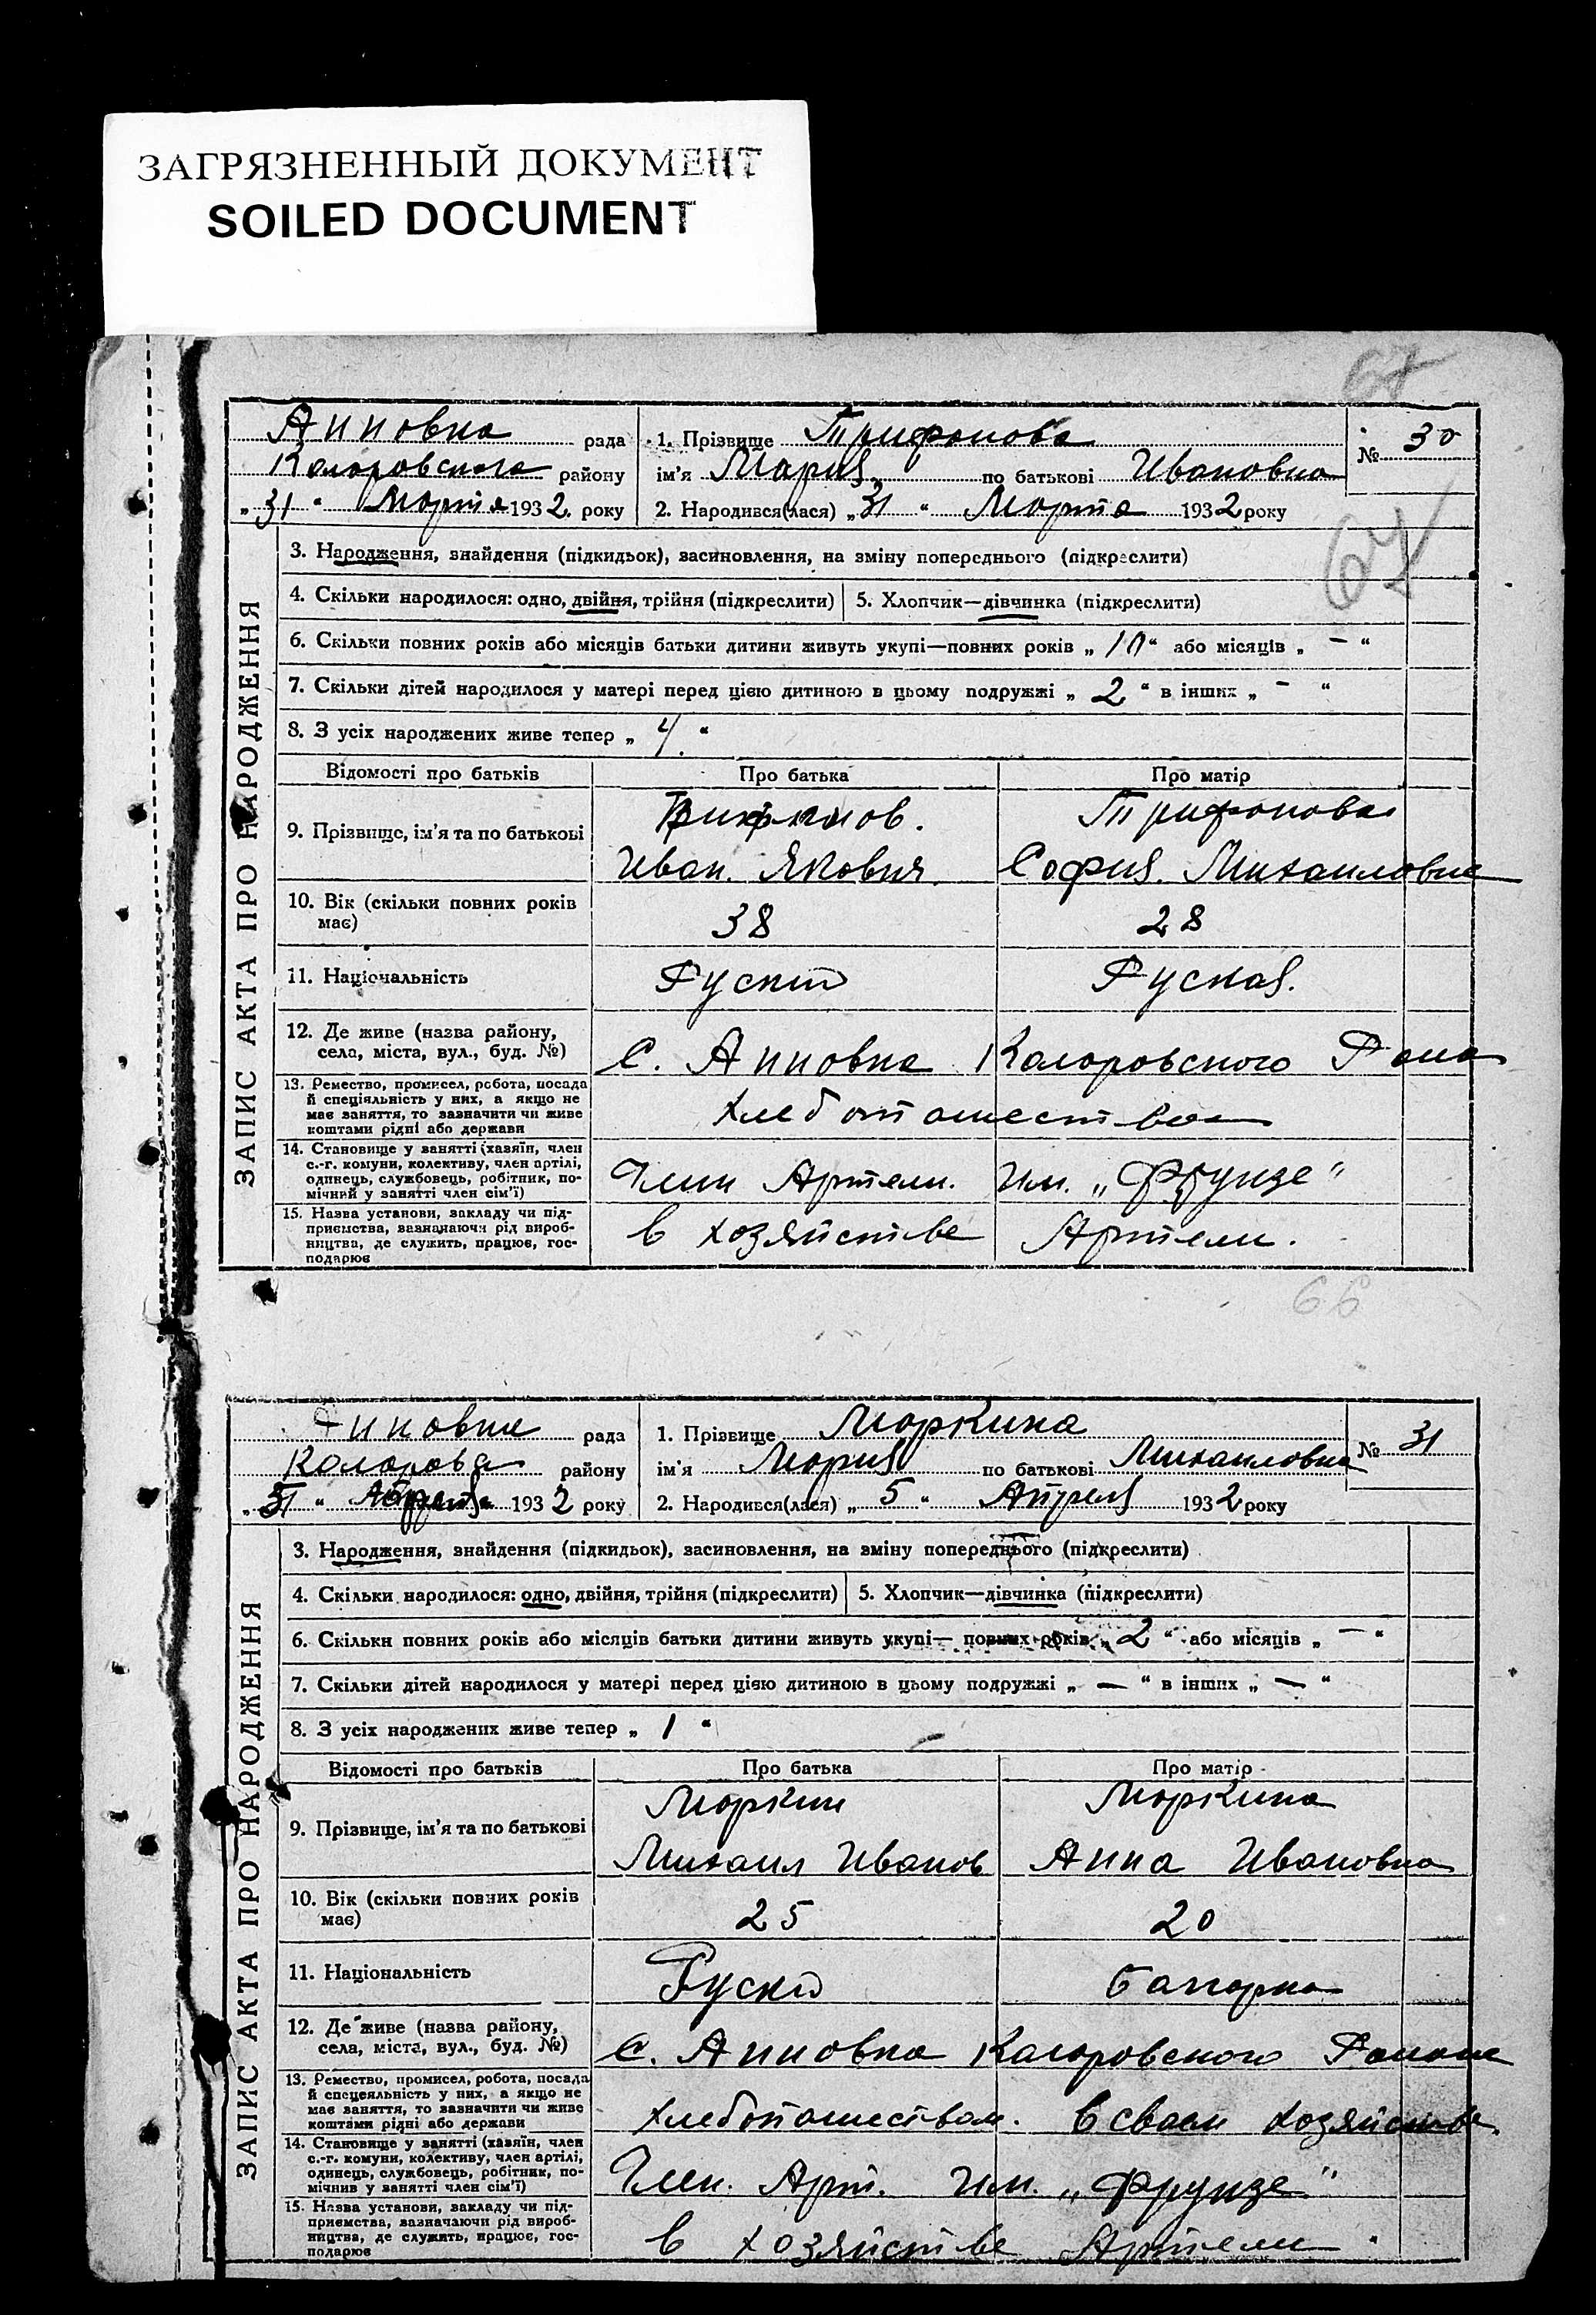 ЗАГРЯЗНЕННЫЙ ДОКУМЕНТ
SOILED DOCUMENT
67
Анновка рада
Коларовского району
„31“ Марта 1932 року
1. Прізвище Трифонова
ім'я Мария по батькові Ивановна
2. Народився(лася) „31“ Марта 1932 року
№ 30
67
ЗАПИС АКТА ПРО НАРОДЖЕННЯ
3. Народження, знайдення (підкидьок), засиновлення, на зміну попереднього (підкреслити)
4. Скільки народилося: одно, двійня, трійня (підкреслити) 5. Хлопчик—дівчинка (підкреслити)
6. Скільки повних років або місяців батьки дитини живуть укупі—повних років „10“ або місяців „–“
7. Скільки дітей народилося у матері перед цією дитиною в цьому подружжі „2“ в інших „–“
8. З усіх народжених живе тепер „4.“
Відомості про батьків Про батька Про матір
9. Прізвище, ім'я та по батькові
Трифонов. Трифонова
Иван. Яковл. София. Михаиловна
10. Вік (скільки повних років має) 38 28
11. Національність Руский Руская.
12. Де живе (назва району, села, міста, вул., буд. №)
С. Анновка Коларовского
13. Ремество, промисел, робота, посада
й спеціяльність у них, а якщо не
має заняття, то зазначити чи живе
коштами рідні або держави
Хлебопашество
14. Становище у занятті (хазяїн, член
с.-г. комуни, колективу, член артілі,
одинець, службовець, робітник, по-
мічний у занятті член сім'ї)
Член Артели. Им. „Фрунзе“
15. Назва установи, закладу чи під-
приємства, зазначаючи рід вироб-
ництва, де служить, працює, гос-
подарює
в хозяйстве Артели.
66
Анновка рада
Коларова району
1932 року
1. Прізвище Моркина
ім'я Мория по батькові Михаиловна
2. Народився(лася) „5“ Апреля 1932 року
№ 31
ЗАПИС АКТА ПРО НАРОДЖЕННЯ
3. Народження, знайдення (підкидьок), засиновлення, на зміну попереднього (підкреслити)
4. Скільки народилося: одно, двійня, трійня (підкреслити) 5. Хлопчик—дівчинка (підкреслити)
6. Скільки повних років або місяців батьки дитини живуть укупі— повних років „2“ або місяців „–“
7. Скільки дітей народилося у матері перед цією дитиною в цьому подружжі „—“ в інших „—“
8. З усіх народжених живе тепер „1“
Відомості про батьків Про батька Про матір
9. Прізвище, ім'я та по батькові
Моркин Моркина
Михаил Иванов Анна Ивановна
10. Вік (скільки повних років має) 25 20
11. Національність Руский Балгорка
12. Де живе (назва району, села, міста, вул., буд. №)
С. Анновка Коларовского
13. Ремество, промисел, робота, посада
й спецеяльність у них, а якщо не
має заняття, то зазначити чи живе
коштами рідні або держави
Хлебопашеством. В своем хозяйстве.
14. Становище у занятті (хазяїн, член
с.-г. комуни, колективу, член артілі,
одинець, службовець, робітник, по-
мічнив у занятті член сім'ї)
Член. Арт. Им. „Фрунзе“
15. Назва установи, закладу чи під-
приємства, зазначаючи рід вироб-
ництва, де служить, працює, гос-
подарює
в хозяйстве Артели